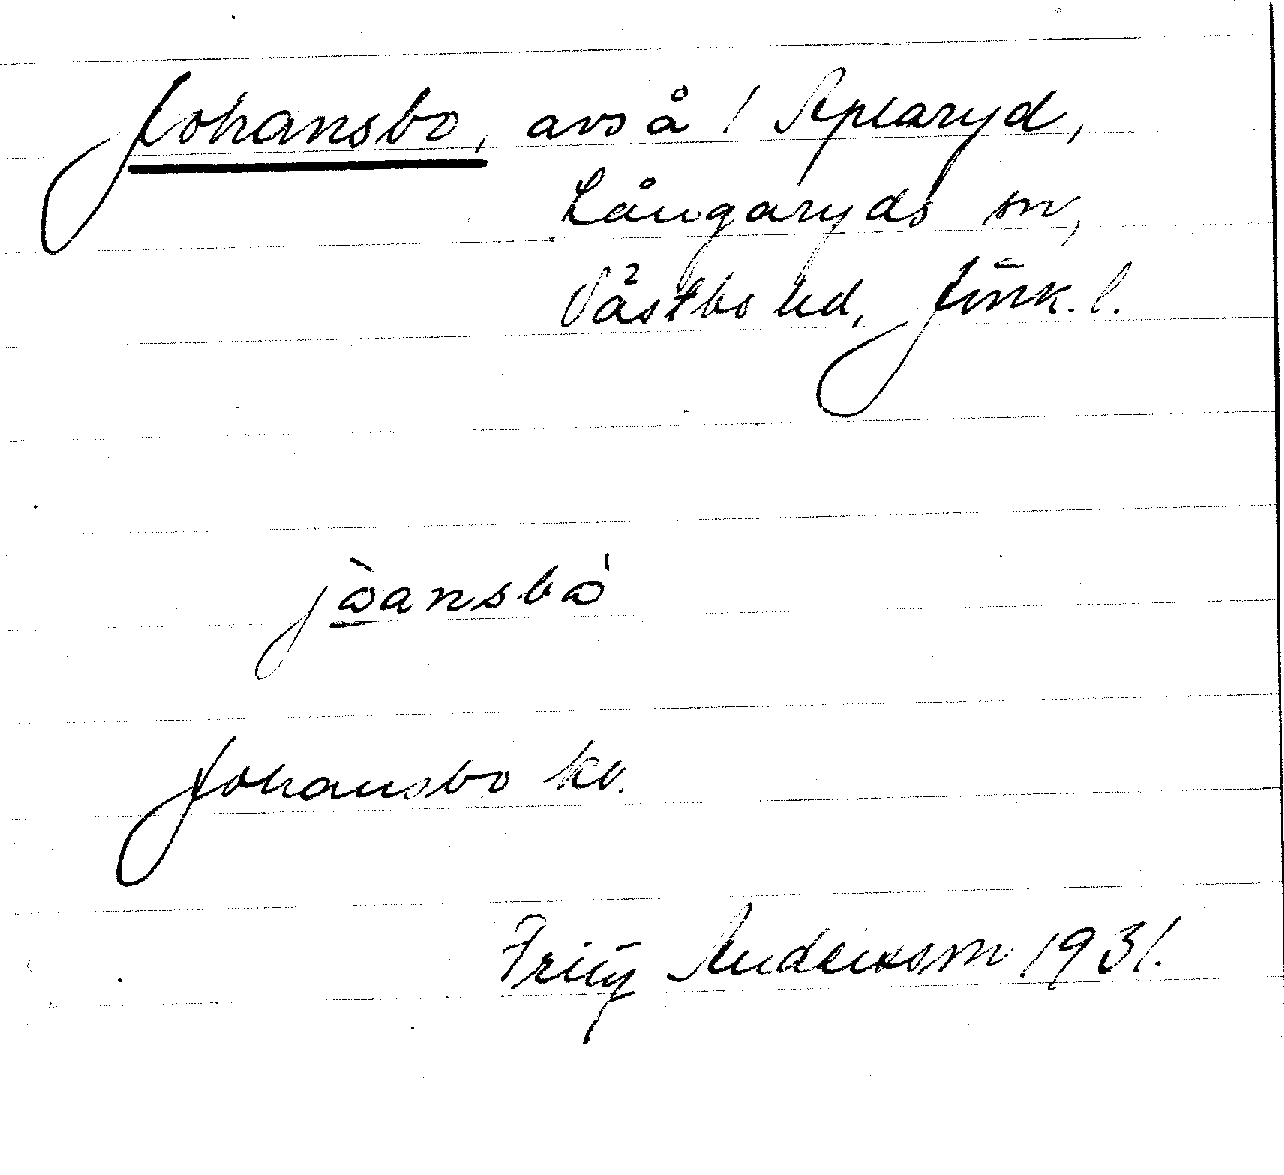 Johansbo, avs å / Aplaryd,
Långaryds sn,
Västbo hd, Jönk. l.
jòansbó
Johansbo kv.
Fritz Andersson 1931.